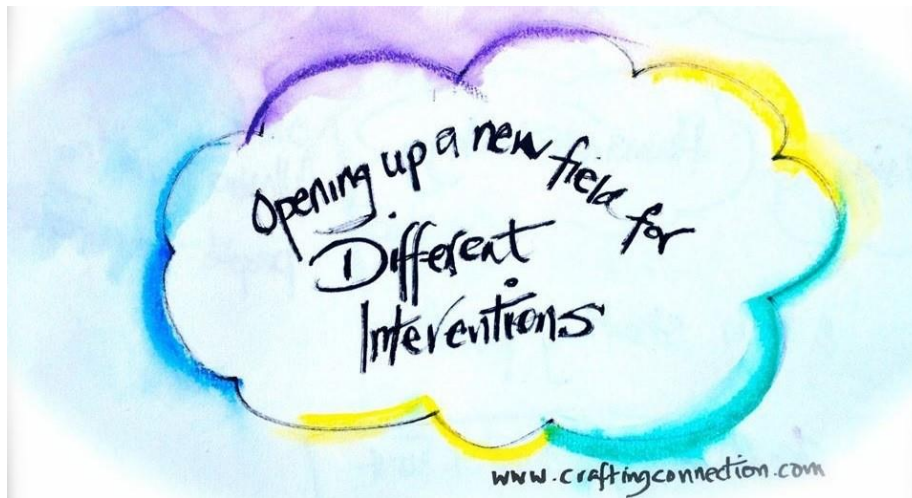 Opening up a new field for
Different
Interventions
www.craftingconnection.com